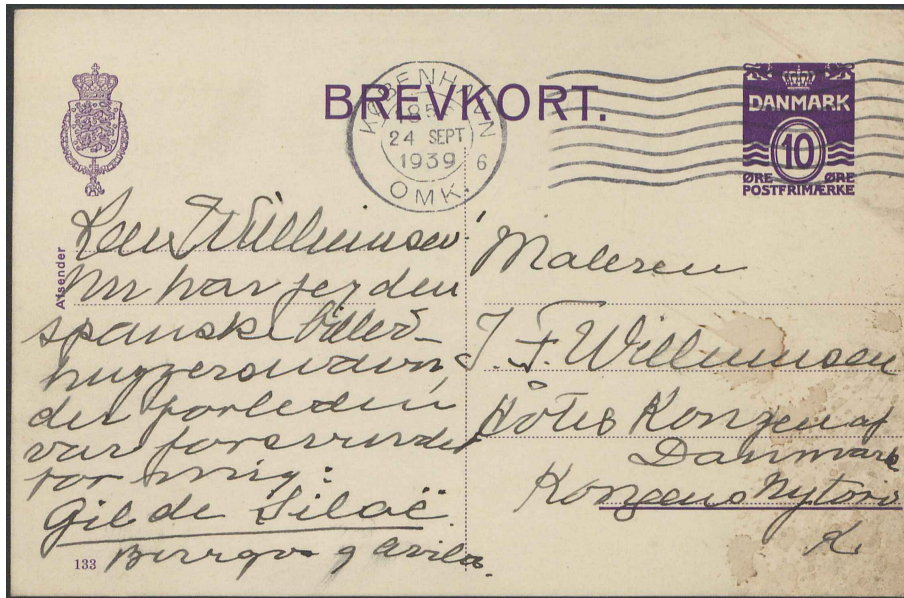 BREVKORT.
KØBENHAVN
24 SEPT
1939 6
OMK.
DANMARK
10
ØRE ØRE
POSTFRIMÆRKE
Afsender
Kære Willumsen!
Nu har jeg den
spanske Billed-
huggers
der forleden
var forsvundet
for mig:
Gil de Siloë
Burgos og Avila.
133
Maleren
J. F. Willumsen
Hotel Kongen af
Danmark
Kongens Nytorv
K.